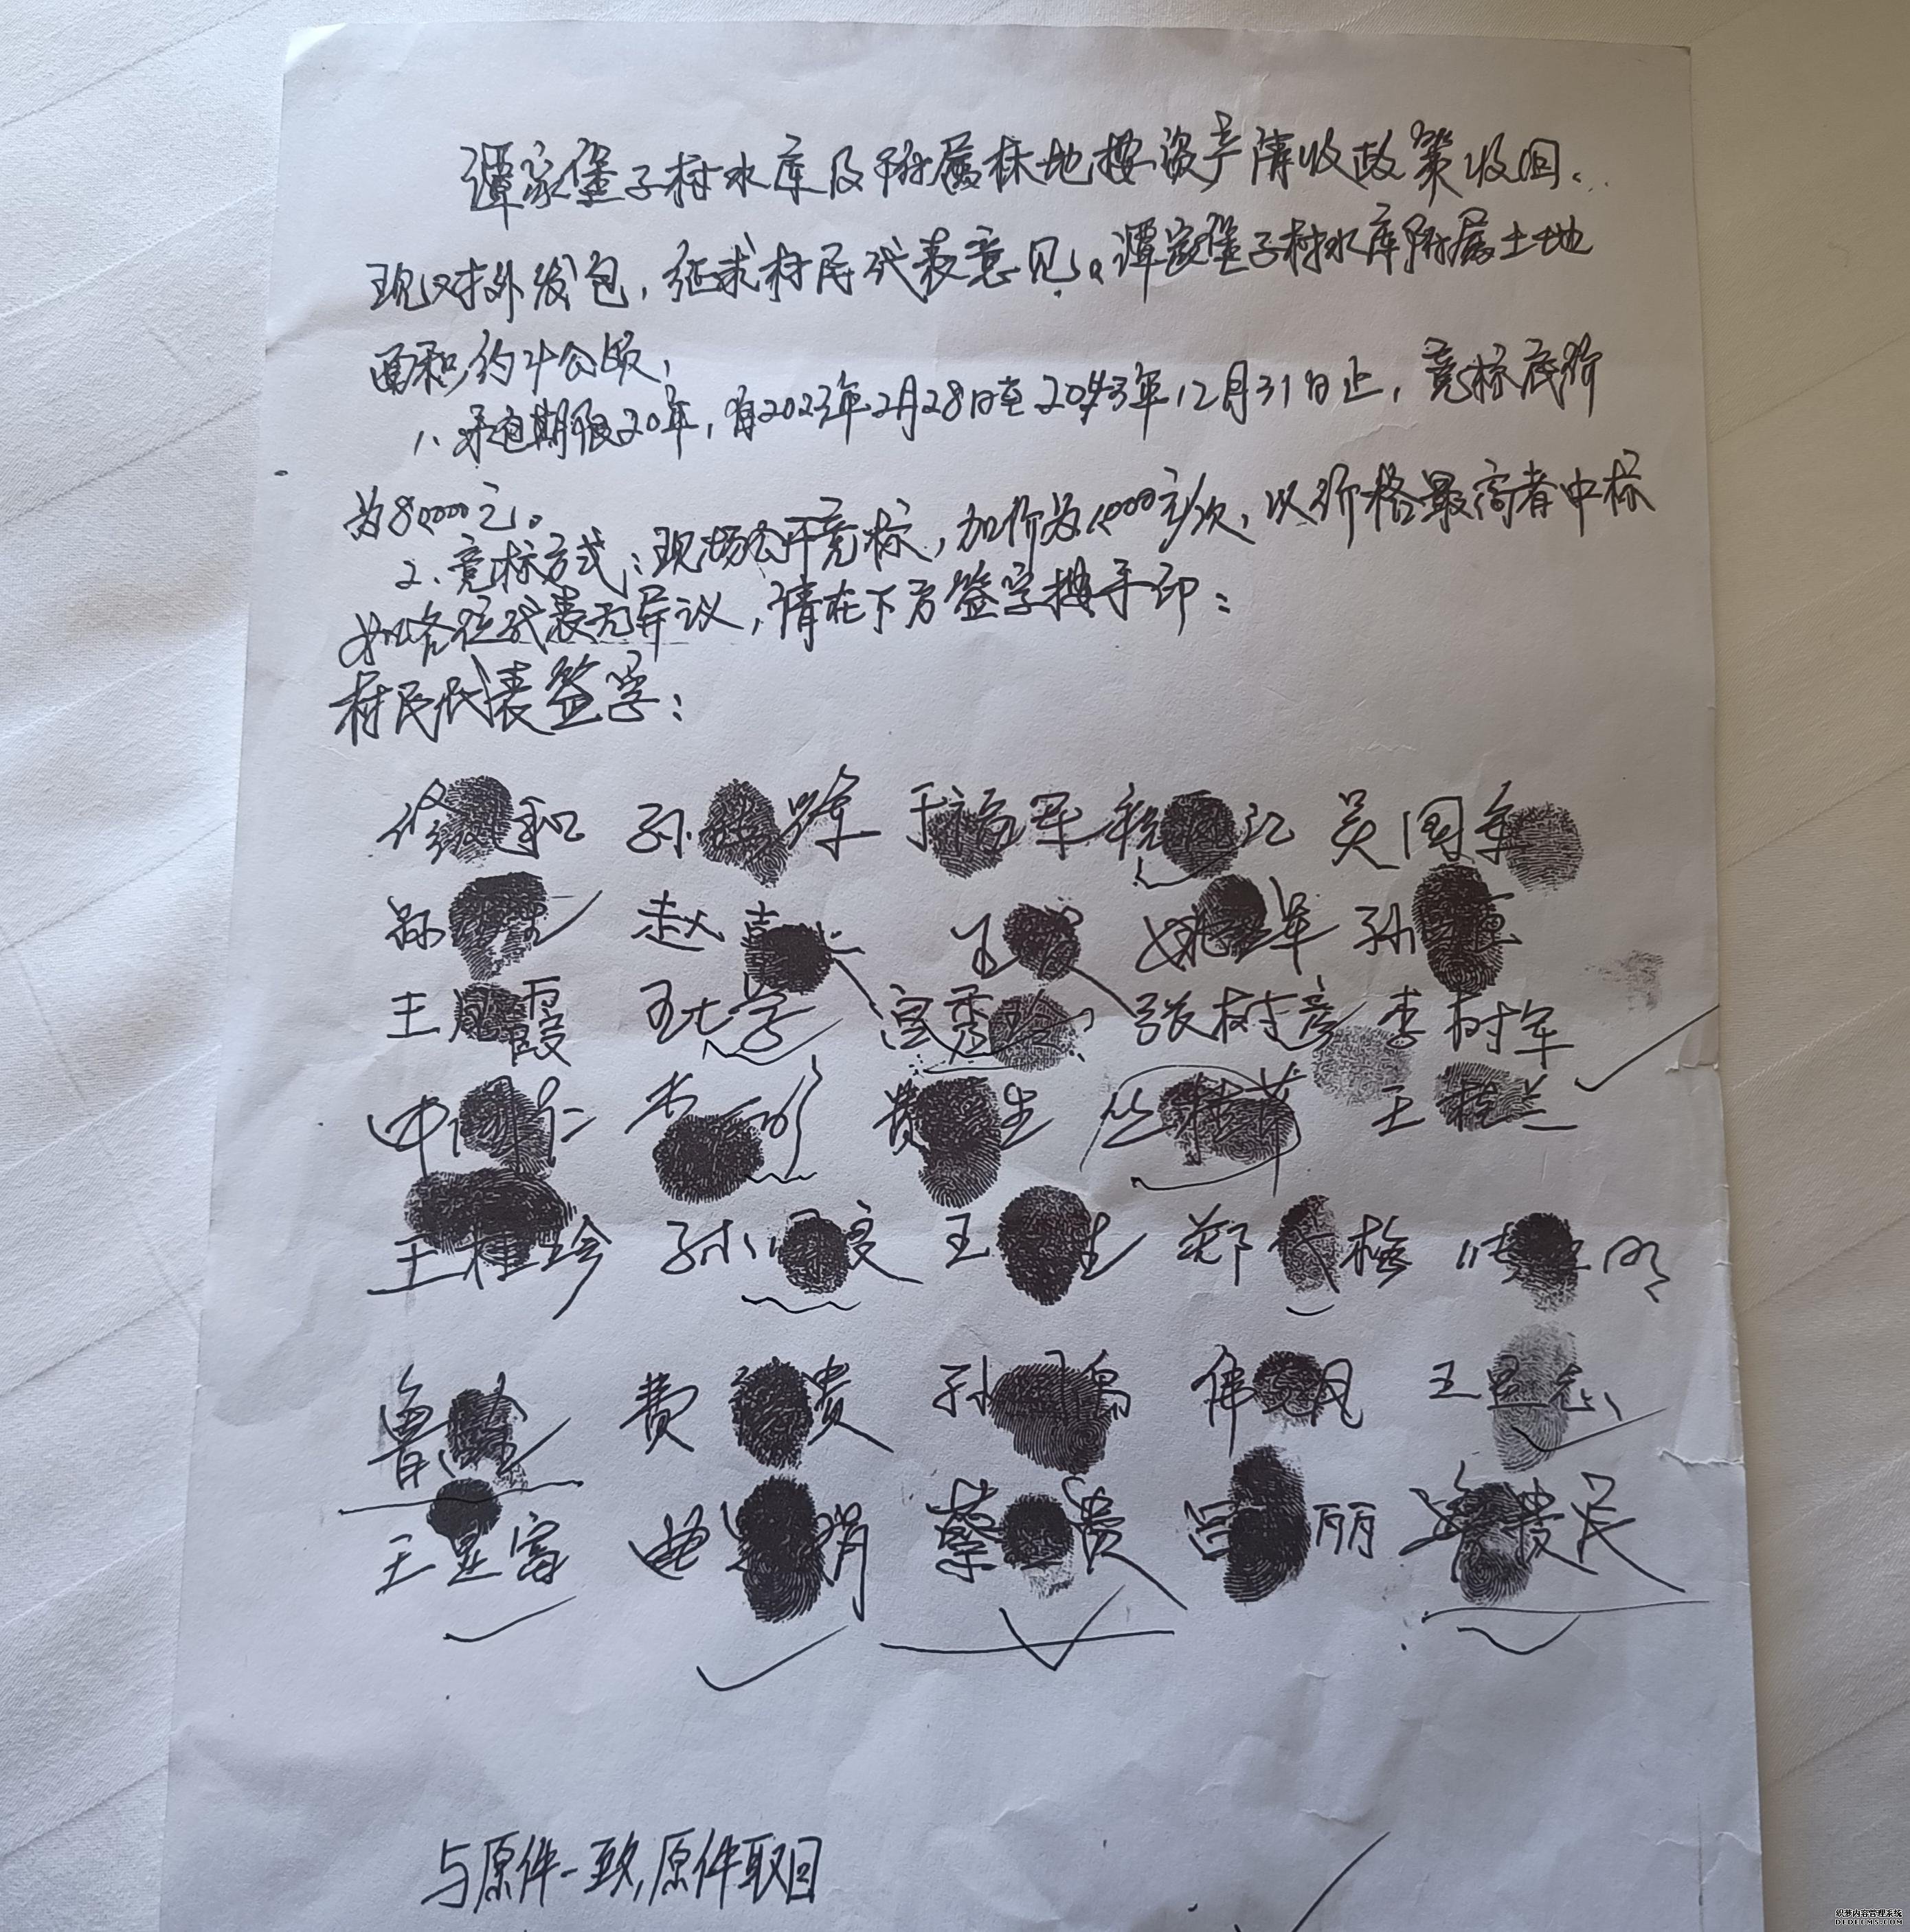 谭家堡子村水库及附属林地按资产清收政策收回.
现对外发包,征求村民代表意见。谭家堡子村水库附属土地
面积约4公顷,
1、承包期限20年,自2023年2月28日至2043年12月31日止,竞标底价
为80000元。
2、竞标方式:现场公开竞标,加价为1000元/次,以价格最高者中标
如各位代表无异议,请在下方签字按手印:
村民代表签字:
修 和 孙 军 于福军 江 吴国军
孙 赵喜 王 姚 军 孙 德
王凤霞 王大学 宫秀玲 张树彦 李树军
申国仁 费 生 丛桂芹 王桂兰
王桂珍 孙 文 王 生 郑 梅 明
鲁 费 贵 孙 凤 王显志
王显富 曲 娟 蔡 贵 吕 丽 贵民
与原件一致,原件取回
织梦内容管理系统
DEDECMS.COM